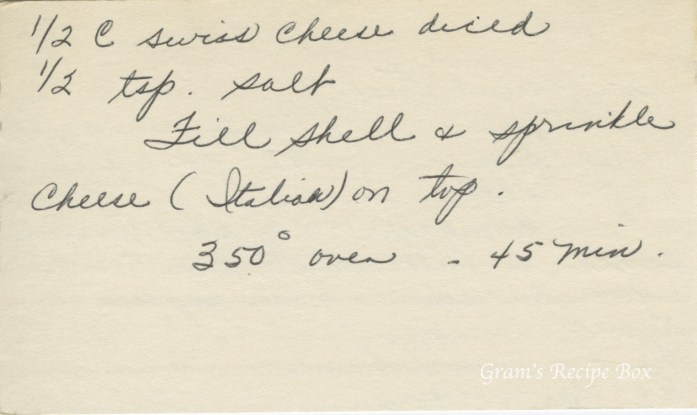 1/2 C swiss cheese diced
1/2 tsp. salt
Fill shell & sprinkle
cheese (Italian) on top.
350° oven - 45 min.
Gram's Recipe Box